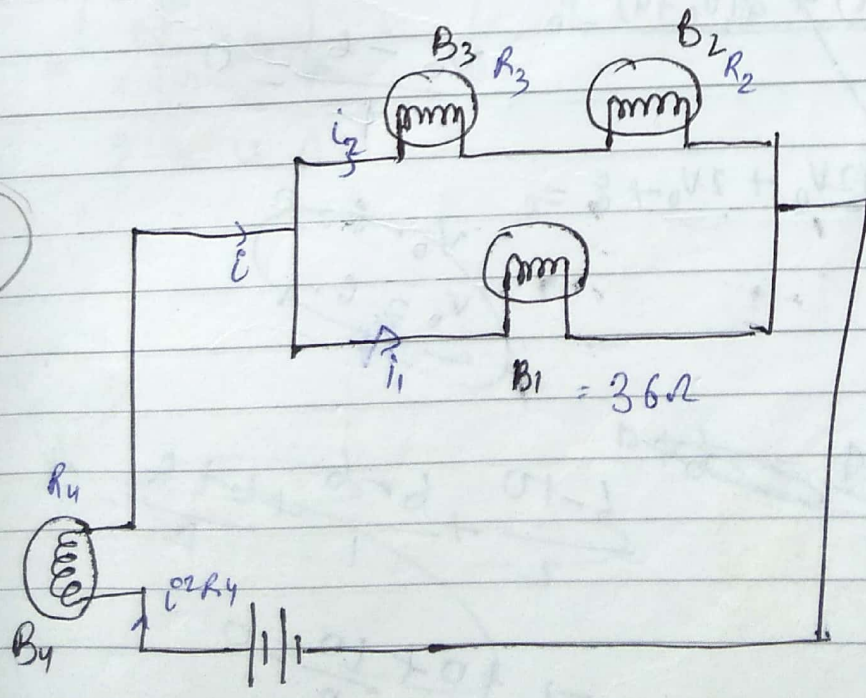 B3 R3
B2 R2
i2
i
i1
B1 = 36Ω
R4
i²R4
B4